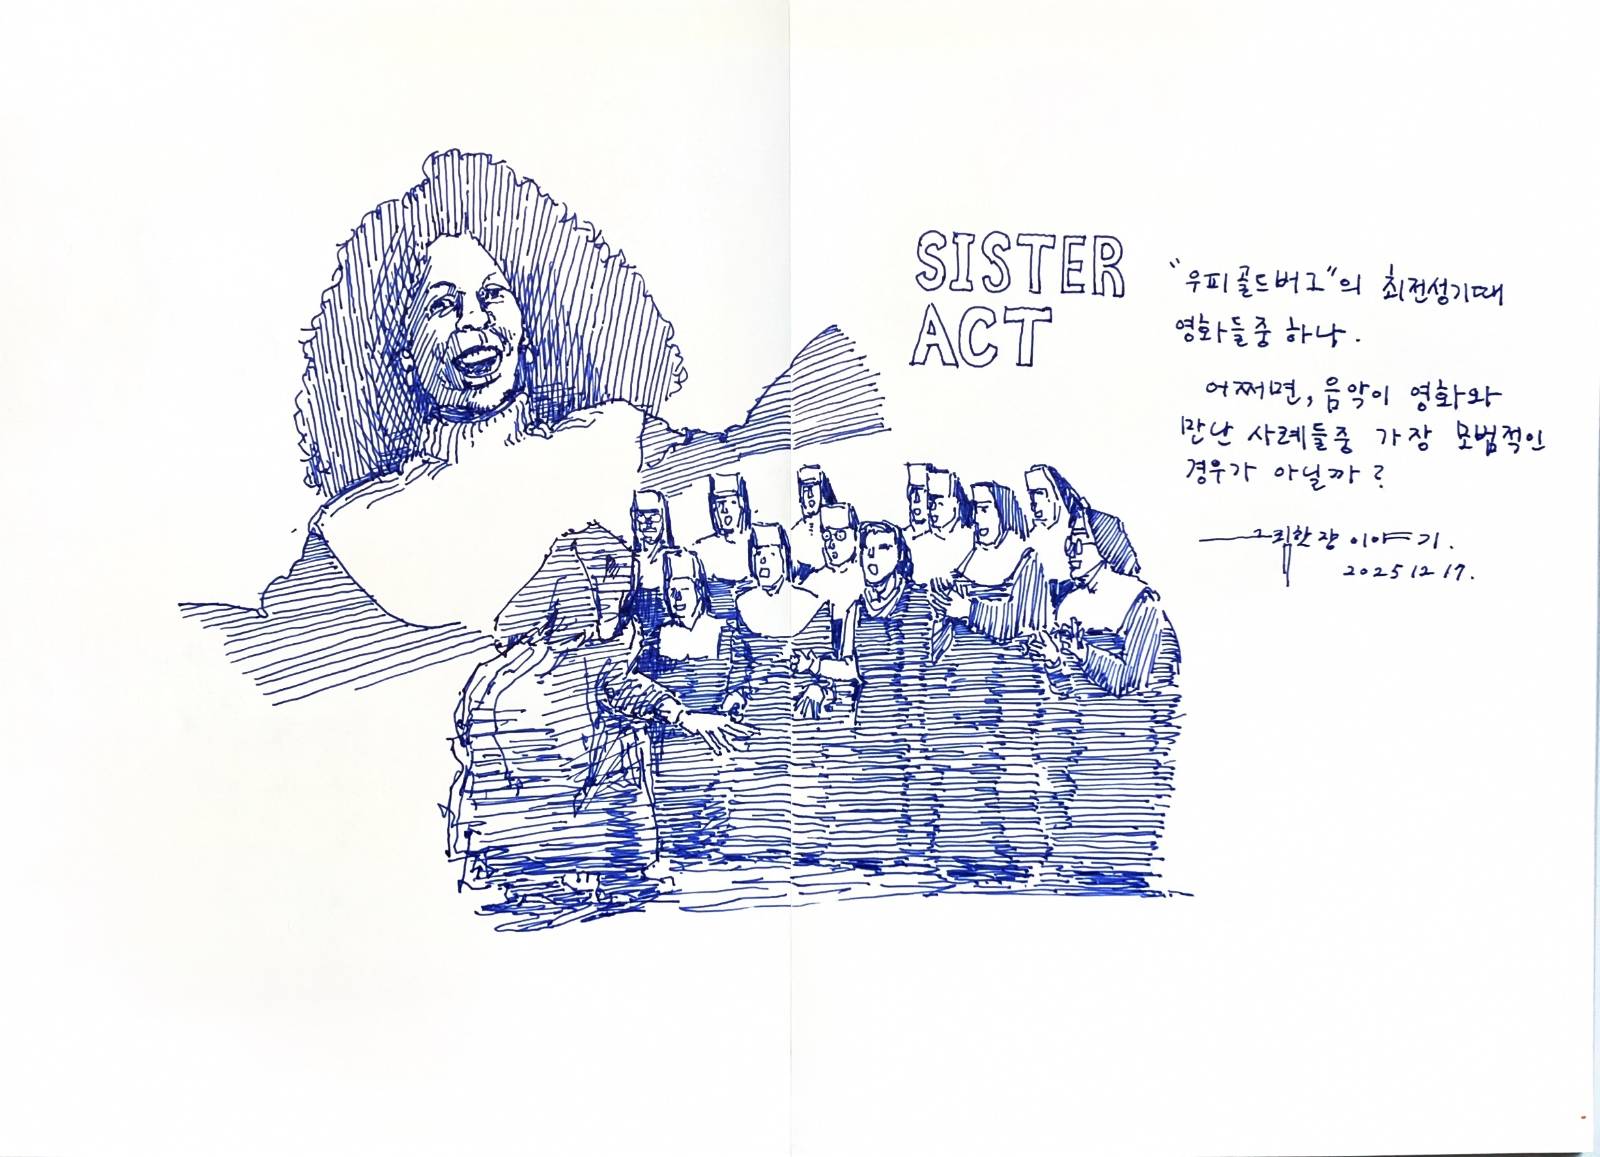 SISTER
ACT
"우피골드버그"의 최전성기때
영화들중 하나.
어쩌면, 음악이 영화와
만난 사례들중 가장 모범적인
경우가 아닐까?
그림한장 이야기.
2025 12 17.